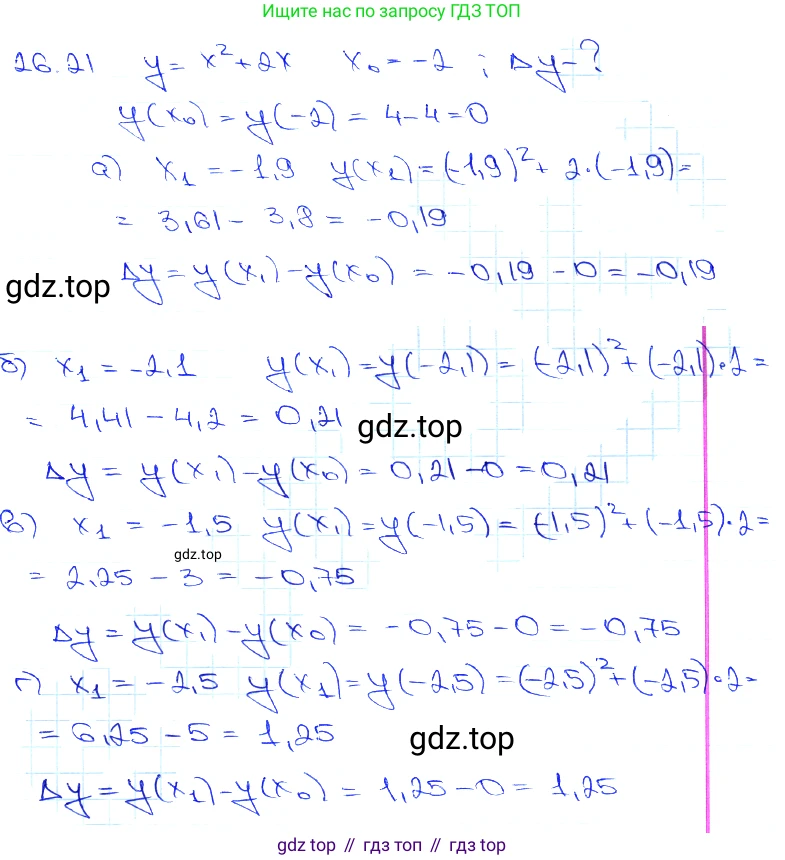 Ищите нас по запросу ГДЗ ТОП
26.21 y = x² + 2x x₀ = -2 ; Δy - ?
y(x₀) = y(-2) = 4 - 4 = 0
а) x₁ = -1,9 y(x₁) = (-1,9)² + 2·(-1,9) =
= 3,61 - 3,8 = -0,19
gdz.top Δy = y(x₁) - y(x₀) = -0,19 - 0 = -0,19
б) x₁ = -2,1 y(x₁) = y(-2,1) = (-2,1)² + (-2,1)·2 =
= 4,41 - 4,2 = 0,21
gdz.top
Δy = y(x₁) - y(x₀) = 0,21 - 0 = 0,21
в) x₁ = -1,5 y(x₁) = y(-1,5) = (-1,5)² + (-1,5)·2 =
gdz.top
= 2,25 - 3 = -0,75
Δy = y(x₁) - y(x₀) = -0,75 - 0 = -0,75
г) x₁ = -2,5 y(x₁) = y(-2,5) = (-2,5)² + (-2,5)·2 =
= 6,25 - 5 = 1,25
gdz.top
Δy = y(x₁) - y(x₀) = 1,25 - 0 = 1,25
gdz top // гдз топ // gdz top